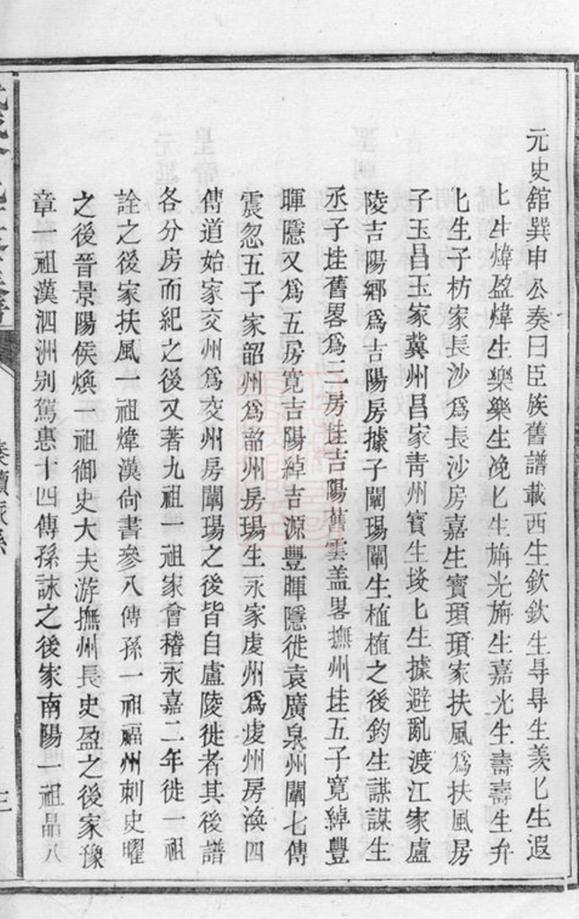 元史舘巽申公奏曰臣族舊譜載西生欽欽生尋尋生羨匕生遐
匕生煒盈煒生樂樂生浼匕生旃光旃生嘉光生壽壽生弁
匕生子枋家長沙爲長沙房嘉生寳瑣瑣家扶風爲扶風房
子玉昌玉家冀州昌家靑州寳生埮匕生據避亂渡江家盧
陵吉陽鄉爲吉陽房據子闡瑒闡生植植之後鈞生謀謀生
丞子㙓舊畧爲三房㙓吉陽舊雲盖畧撫州㙓五子寛綽豐
暉隱又爲五房寛吉陽綽吉源豐暉隱徙袁廣泉州闡七傳
震忽五子家韶州爲韶州房瑒生永家虔州爲虔州房渙四
傳道始家交州爲交州房闡瑒之後皆自盧陵徙者其後譜
各分房而紀之後又著九祖一祖家會稽永嘉二年徙一祖
詮之後家扶風一祖煒漢尙書參八傳孫一祖福州刺史曜
之後晉景陽侯煥一祖御史大夫游撫州長史盈之後家豫
章一祖漢泗洲别駕惠十四傳孫詠之後家南陽一祖晶八
三